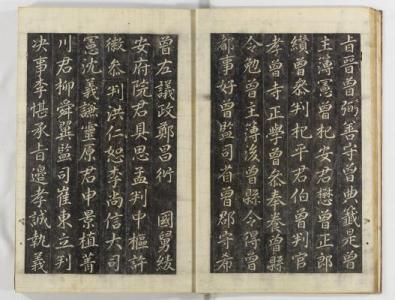 旨晋曾弼善守曾典籤是曾
主薄寔曾杞安君懋曾正郎
績曾叅判杞平君伯曾判官
孝曾寺正學曾叅奉養曾縣
令勉曾主薄後曾縣令得曾
都事好曾監司省曾郡守希
曾左議政鄭昌衍 國舅綾
安府院君具思孟判中樞許
徽叅判洪仁恕李尚信大司
憲沈義謙靈原君申景植菁
川君柳舜翼監司崔東立判
决事李愖承旨邊孝誠執義